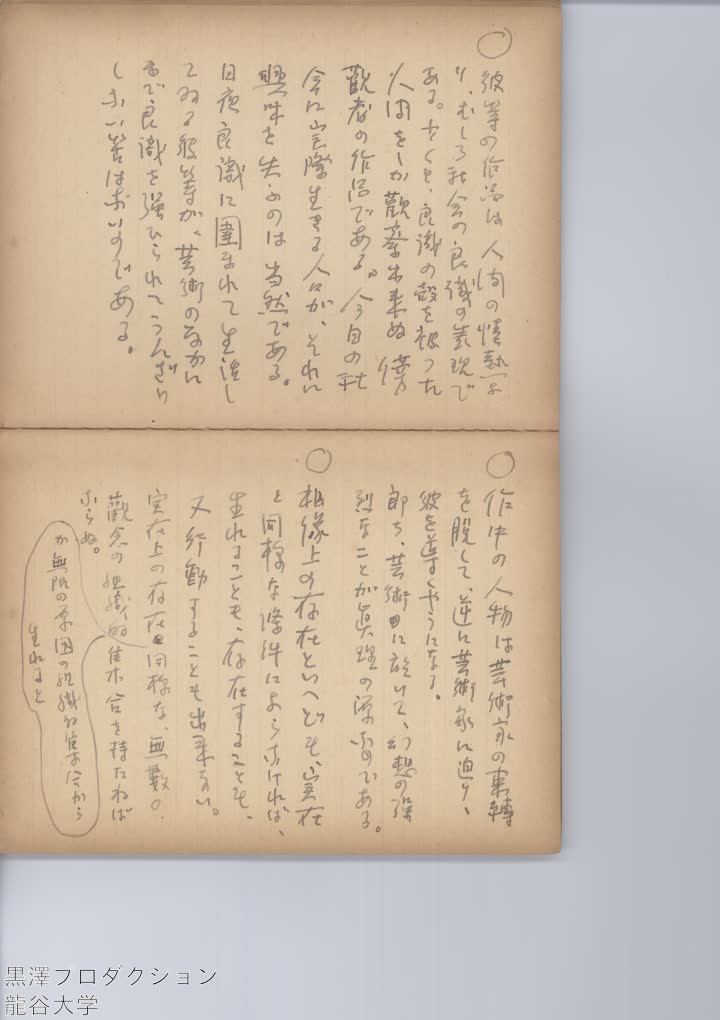 ○
彼等の作品は人間の情熱よ
り、むしろ社会の良識の表現で
ある。すくと、良識の殻を被つた
人間をしか觀察出来ぬ傍
觀者の作品である。今日の社
会に実際生きる人々が、それに
興味を失ふのは当然である。
日夜良識に圍まれて生活し
てゐる彼等が、芸術のなかに
まで良識を強ひられてうんざり
しない筈はないのである。
○
作中の人物は芸術家の束縛
を脱して、逆に芸術家に迫り、
彼を導くやうになる。
即ち、芸術に於いて、幻想の強
烈なことが眞理の源なのである。
○
想像上の存在といへども、実在
と同様な條件によらなければ、
生れることも、存在することも、
又行動することも出来ない。
実在上の存在同様な、無数の
觀念の組織的集合を持たねば
ならぬ。
か無限の原因の組織的集合から
生れると
黒澤プロダクション
龍谷大学